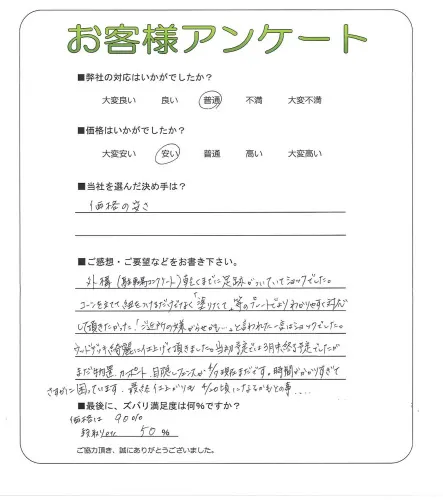 お客様アンケート
■弊社の対応はいかがでしたか？
大変良い 良い 普通 不満 大変不満
■価格はいかがでしたか？
大変安い 安い 普通 高い 大変高い
■当社を選んだ決め手は？
価格の安さ
■ご感想・ご要望などをお書き下さい。
外構(駐車場コンクリート)乾くまでに足跡がついていてショックでした。
コーンを立てて紐をつけるだけでなく「塗りたて」等のプレートでよりわかりやすく対応
して頂きたかった！「ご近所の様がらせかも…」と言われた一言はショックでした。
ウッドデッキ綺麗に仕上げて頂きました。当初予定では3月末終了予定でしたが
まだ物置、カーポート、目隠しフェンスが4/7現在まだです。時間がかかりすぎて
さすがに困っています。最終仕上がりも4/20頃になるかもとの事....
■最後に、ズバリ満足度は何％ですか？
価格は 90%
50 %
ご協力頂き、誠にありがとうございました。